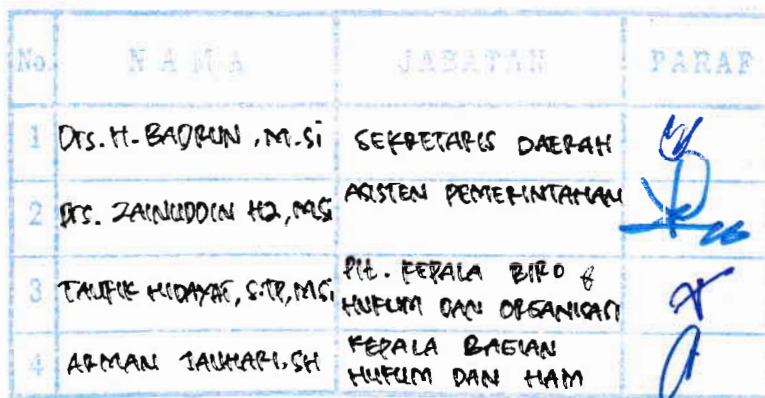 No. NAMA JABATAN PARAF
1 Drs. H. BADRUN, M.Si SEKRETARIS DAERAH
2 Drs. ZAINUDDIN HZ, M.Si ASISTEN PEMERINTAHAN
3 TAUFIK HIDAYAT, S.TP, M.Si Plt. KEPALA BIRO &
HUKUM DAN ORGANISASI
4 ARMAN JAUHARI, SH KEPALA BAGIAN
HUKUM DAN HAM